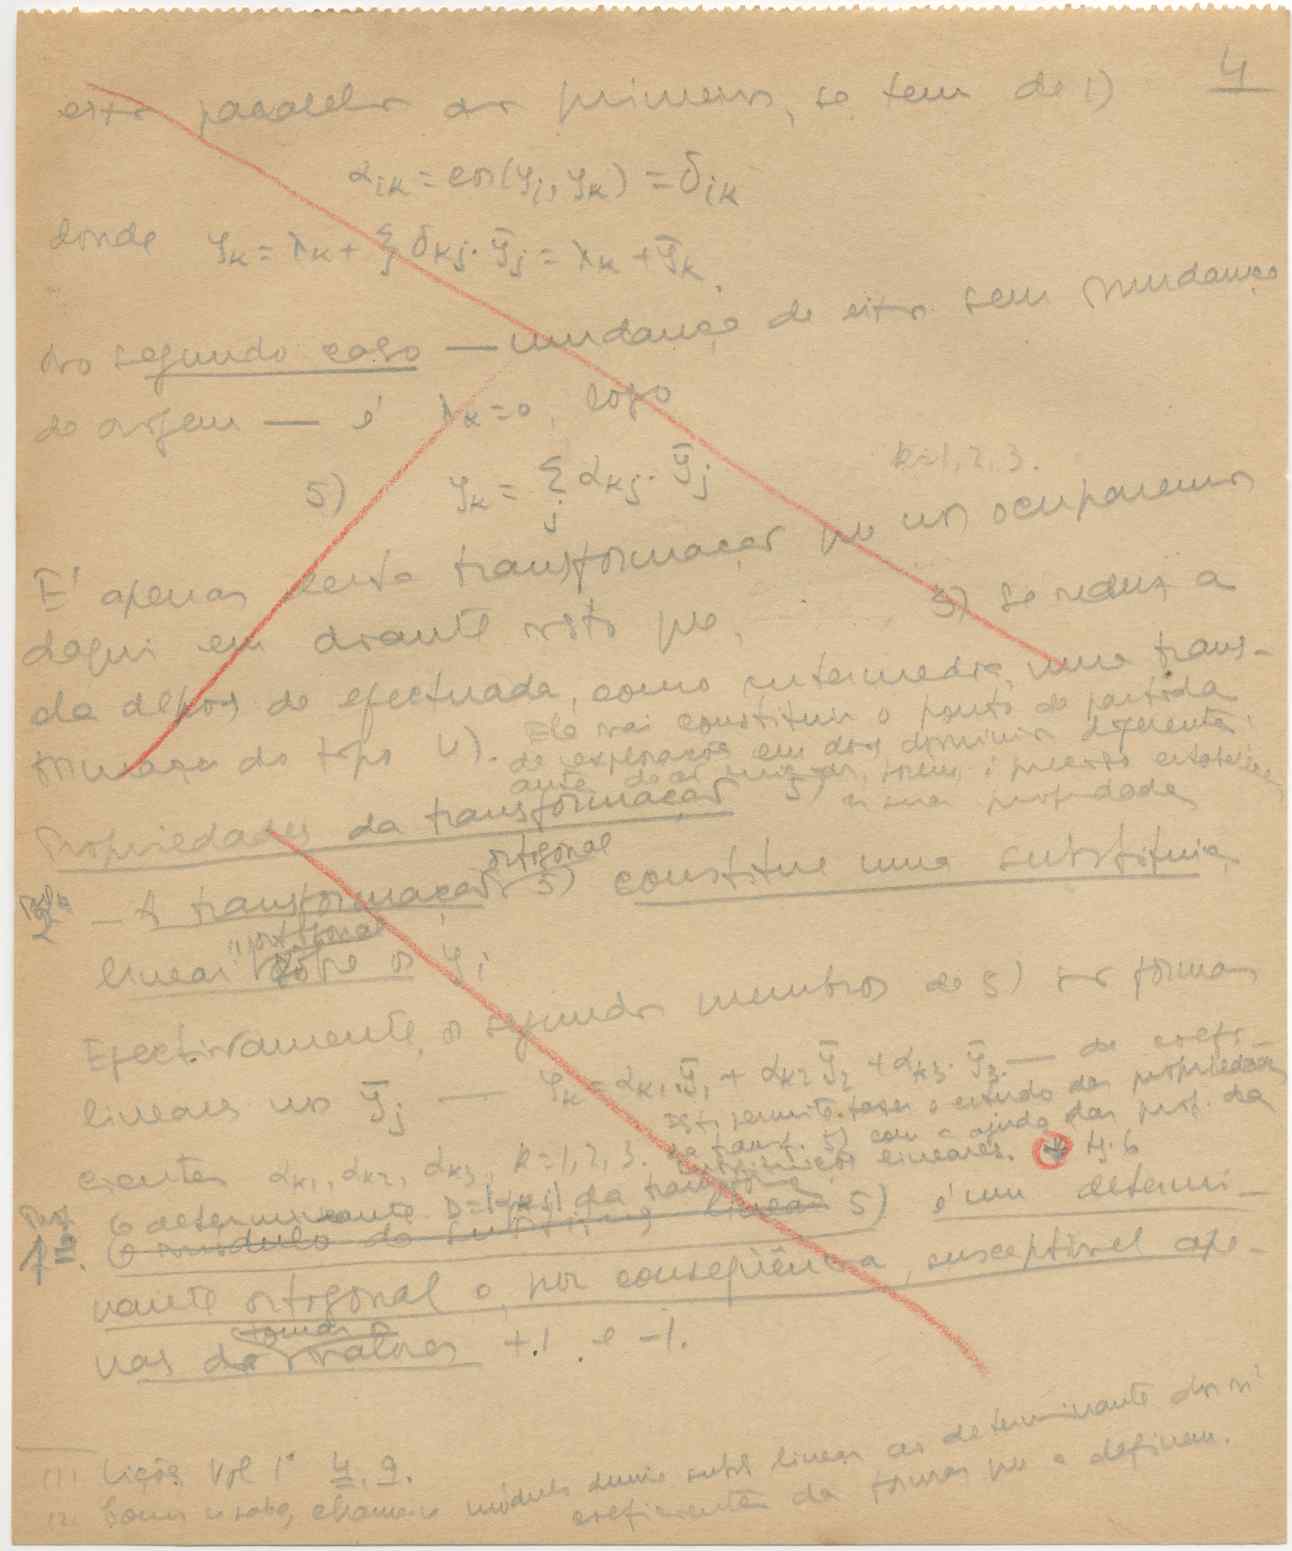 4
eixos paralelos aos primeiros, se tem de 1)
α_ik = cos(y_i, y_k) = δ_ik
donde y_k = λ_k + Σ_j δ_kj . ȳ_j = λ_k + ȳ_k.
No segundo caso — mudança de eixos sem mudança
de origem — é λ_k = 0, logo
5) y_k = Σ_j α_kj . ȳ_j k=1, 2, 3.
É apenas desta transformação que nos ocuparemos
daqui em diante visto que, 3) se reduz a
ela depois de efectuada, como intermédia, uma trans-
formação do tipo 4). Ela vai constituir o ponto de partida
de exploração em dois domínios diferentes;
antes de porém, é preciso estabelecer
Propriedades da transformação 5) as suas propriedades
2 — A transformação ortogonal 5) constitue uma substituição
linear "ortogonal" sobre os y_i
Efectivamente, os segundos membros de 5) são formas
lineares nos ȳ_j — y_k = α_k1 . ȳ_1 + α_k2 ȳ_2 + α_k3 . ȳ_3 — de coefi-
cientes α_k1, α_k2, α_k3, k=1, 2, 3. Isto permite fazer o estudo das propriedades
da transf. 5) com a ajuda das prop. das
substituições lineares. 4.6
O determinante D=|α_kj| da transform.
1 O módulo da substituição linear 5) é um determi-
nante ortogonal e, por consequência, susceptível ape-
nas de tomar os valores +1 e -1.
(1) Lições Vol 1º 4. 9.
(2) Como se sabe, chama-se módulo duma subst. linear ao determinante dos
coeficientes das formas que a definem.